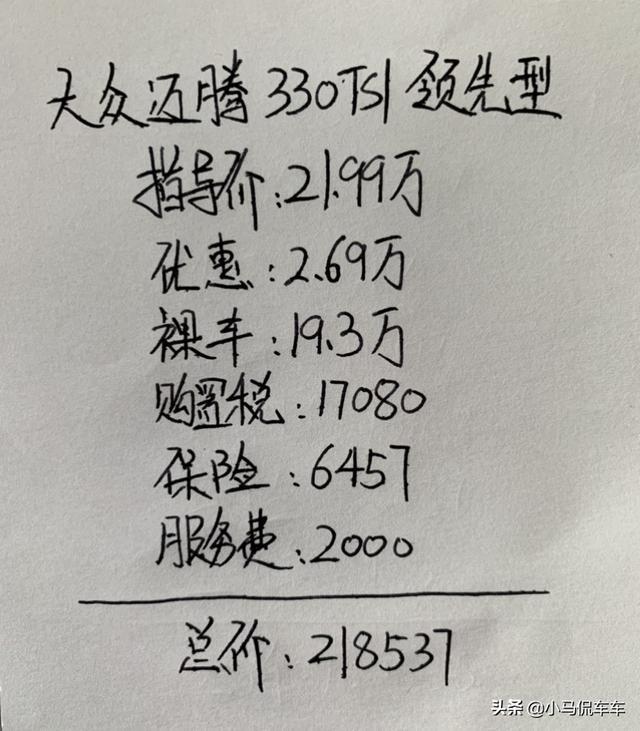 大众迈腾330TSI领先型
指导价:21.99万
优惠:2.69万
裸车:19.3万
购置税:17080
保险:6457
服务费:2000
总价:218537
头条 @小马侃车车